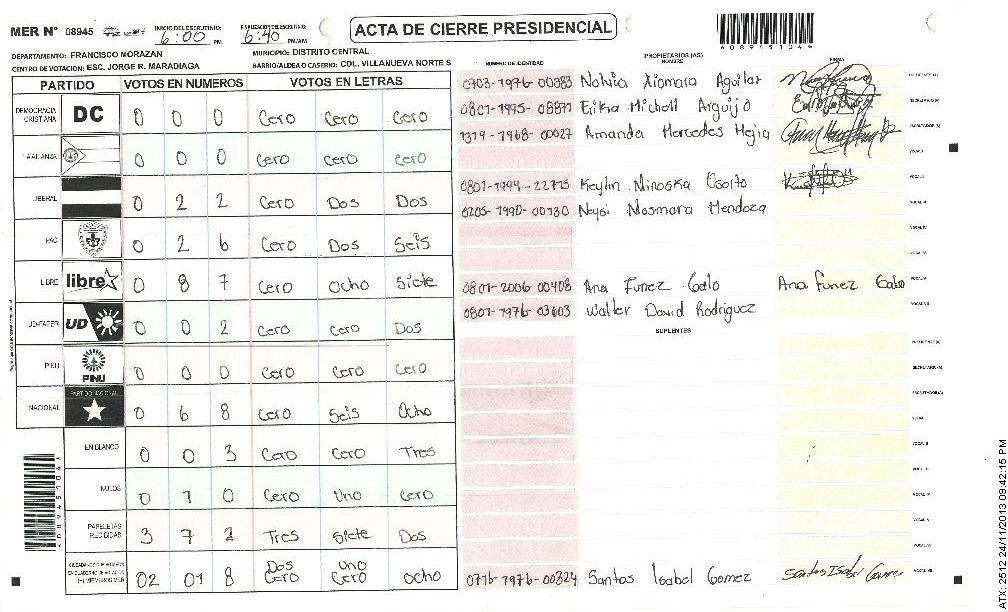 MER N° 08945 INICIO DEL ESCRUTINIO: 6:00 PM FINALIZACION DEL ESCRUTINIO: 6:40 PM/AM ACTA DE CIERRE PRESIDENCIAL
DEPARTAMENTO: FRANCISCO MORAZAN MUNICIPIO: DISTRITO CENTRAL
CENTRO DE VOTACION: ESC. JORGE R. MARADIAGA BARRIO/ALDEA O CASERIO: COL. VILLANUEVA NORTE S
PARTIDO VOTOS EN NUMEROS VOTOS EN LETRAS
DEMOCRACIA CRISTIANA DC 0 0 0 Cero Cero Cero
LA ALIANZA 0 0 0 Cero Cero Cero
LIBERAL 0 2 2 Cero Dos Dos
PAC 0 2 6 Cero Dos Seis
LIBRE libre 0 8 7 Cero Ocho Siete
UD-FAPER UD 0 0 2 Cero Cero Dos
PINU PINU 0 0 0 Cero Cero Cero
NACIONAL PARTIDO NACIONAL 0 6 8 Cero Seis Ocho
EN BLANCO 0 0 3 Cero Cero Tres
NULOS 0 1 0 Cero Uno Cero
PAPELETAS RECIBIDAS 3 7 2 Tres Siete Dos
02 01 8 Dos Cero Uno Cero Ocho
NUMERO DE IDENTIDAD PROPIETARIOS (AS) NOMBRE FIRMA
Aguilar
Erika Michell Arguijo
Amanda Mercedes Mejia
Keylin
Mendoza
0801-2006-00408 Ana Funez Galo Ana Funez Galo
0801-1976-03603 Walter David Rodriguez
SUPLENTES
Santos Isabel Gomez
ATX: 2512 24/11/2013 09:42:15 PM